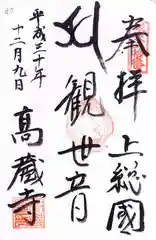 奉拝
上総國
観世音
平成三十年
十二月九日
高蔵寺